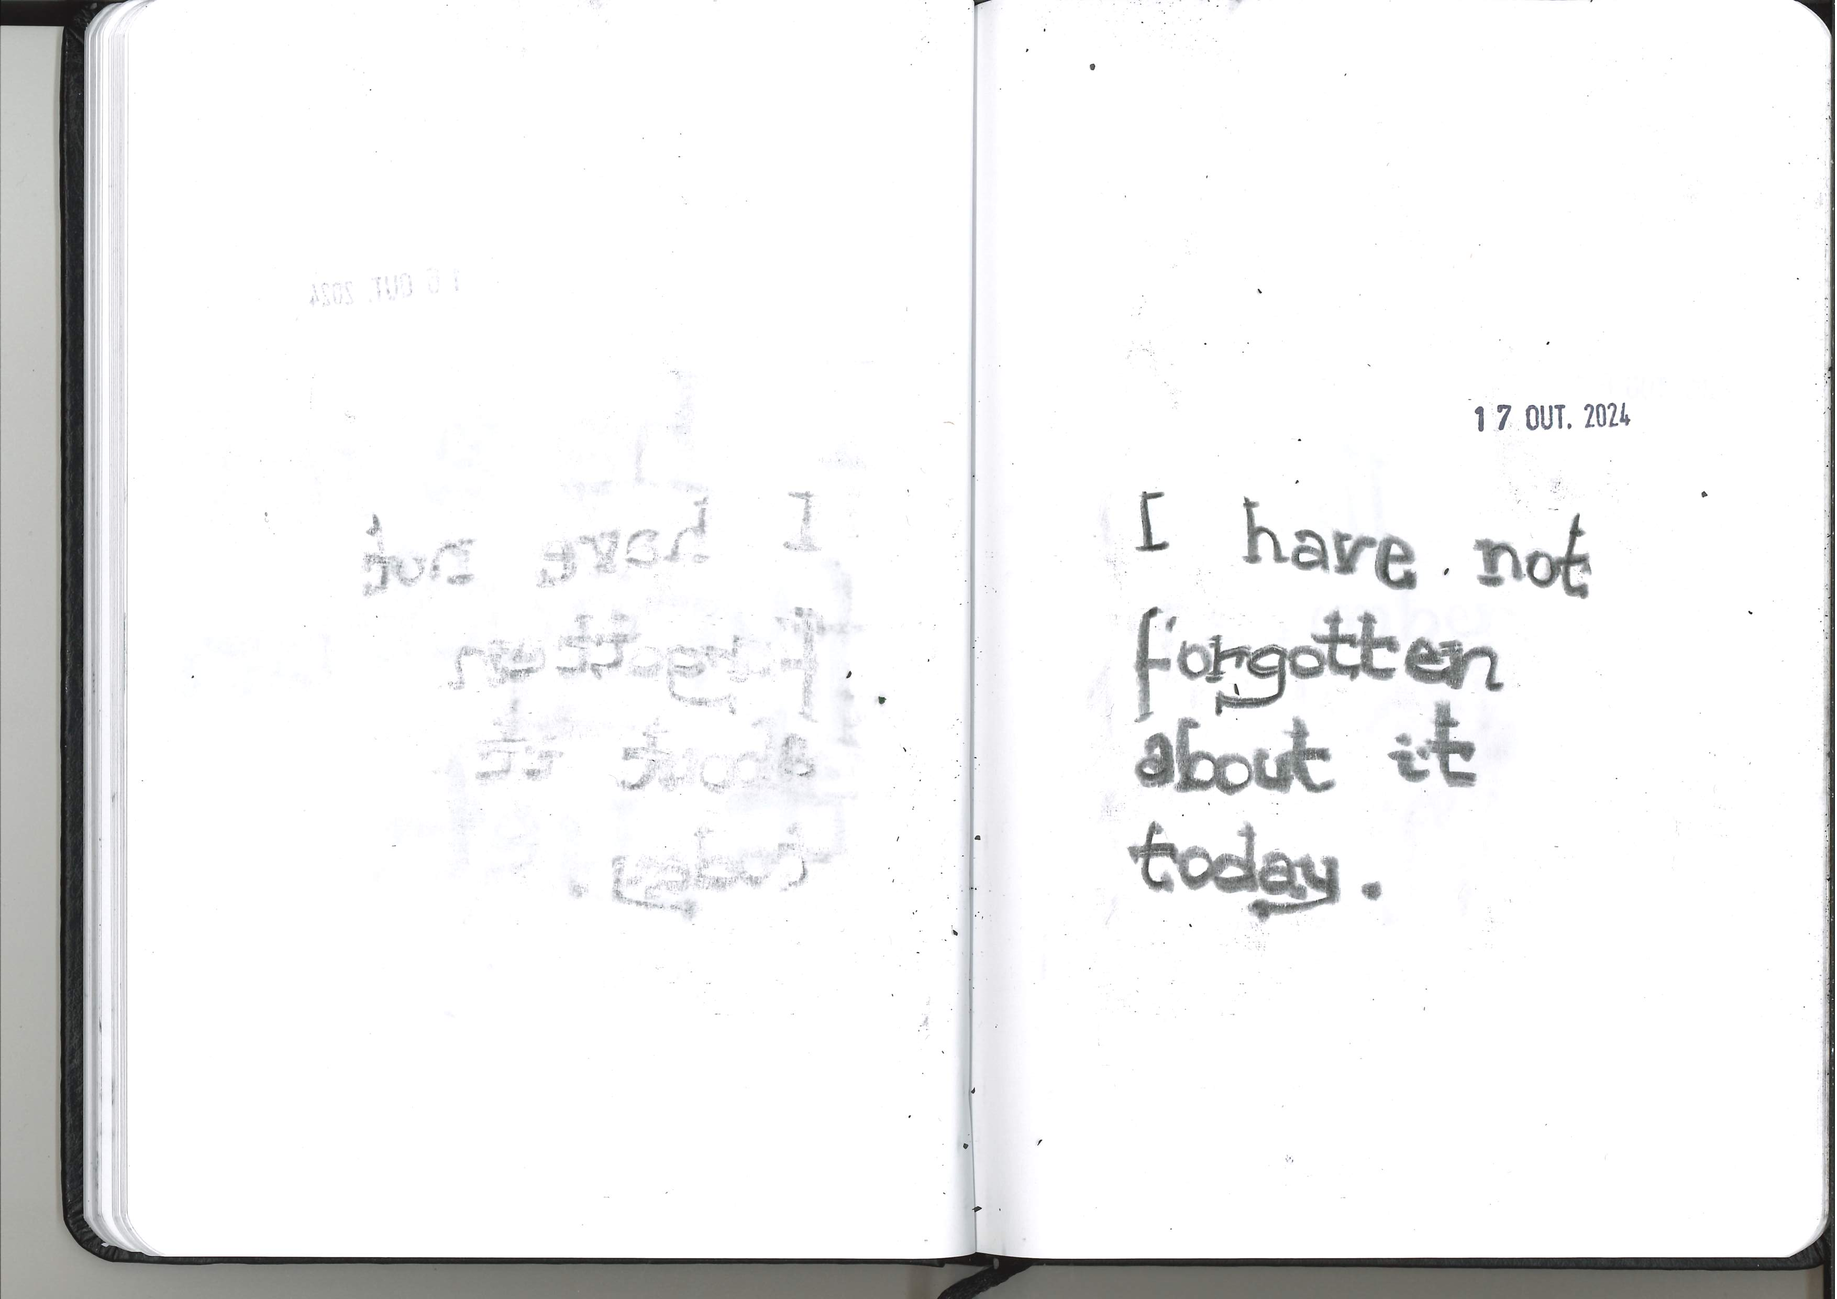 17 OUT. 2024
I have not
forgotten
about it
today.